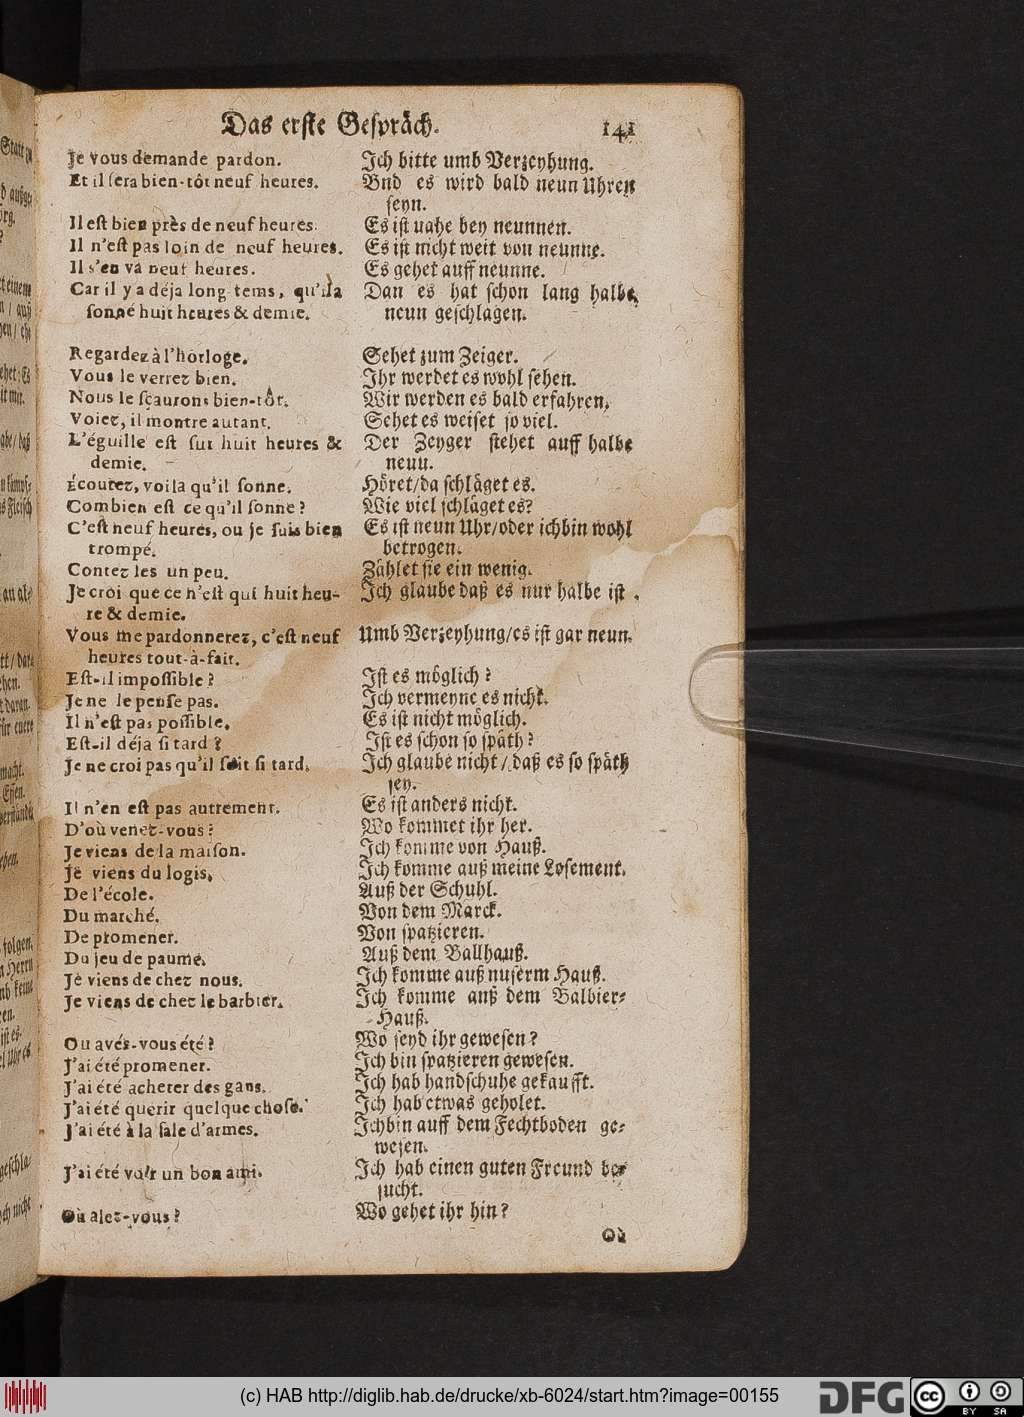 Das erste Gespräch. 141
Je vous demande pardon.
Et il sera bien-tôt neuf heures.
Il est bien près de neuf heures.
Il n'est pas loin de neuf heures.
Il s'en va neuf heures.
Car il y a déja long tems, qu'il a
sonné huit heures & demie.
Regardez à l'horloge.
Vous le verrez bien.
Nous le sçaurons bien-tôt.
Voiez, il montre autant.
L'éguille est sur huit heures &
demie.
Écoutez, voila qu'il sonne.
Combien est ce qu'il sonne?
C'est neuf heures, ou je suis bien
trompé.
Contez les un peu.
Je croi que ce n'est qui huit heu-
re & demie.
Vous me pardonnerez, c'est neuf
heures tout-à-fait.
Est-il impossible?
Je ne le pense pas.
Il n'est pas possible.
Est-il déja si tard?
Je ne croi pas qu'il soit si tard.
Il n'en est pas autrement.
D'où venez-vous?
Je viens de la maison.
Je viens du logis.
De l'école.
Du marché.
De promener.
Du jeu de paume.
Je viens de chez nous.
Je viens de chez le barbier.
Ou avés-vous été?
J'ai été promener.
J'ai été acheter des gans.
J'ai été querir quelque chose.
J'ai été à la sale d'armes.
J'ai été voir un bon ami.
Où alez-vous?
Ich bitte umb Verzeyhung.
Vnd es wird bald neun Uhren
seyn.
Es ist nahe bey neunnen.
Es ist nicht weit von neunne.
Es gehet auff neunne.
Dan es hat schon lang halbe
neun geschlagen.
Sehet zum Zeiger.
Ihr werdet es wohl sehen.
Wir werden es bald erfahren.
Sehet es weiset so viel.
Der Zeyger stehet auff halbe
neun.
Höret/da schläget es.
Wie viel schläget es?
Es ist neun Uhr/oder ich bin wohl
betrogen.
Zählet sie ein wenig.
Ich glaube daß es nur halbe ist.
Umb Verzeyhung/es ist gar neun.
Ist es möglich?
Ich vermeyne es nicht.
Es ist nicht möglich.
Ist es schon so späth?
Ich glaube nicht/daß es so späth
sey.
Es ist anders nicht.
Wo kommet ihr her.
Ich komme von Hauß.
Ich komme auß meine Losement.
Auß der Schuhl.
Von dem Marck.
Von spatzieren.
Auß dem Ballhauß.
Ich komme auß nuserm Hauß.
Ich komme auß dem Balbier-
Hauß.
Wo seyd ihr gewesen?
Ich bin spatzieren gewesen.
Ich hab handschuhe gekaufft.
Ich hab etwas geholet.
Ich bin auff dem Fechtboden ge-
wesen.
Ich hab einen guten Freund be-
sucht.
Wo gehet ihr hin?
Où
(c) HAB http://diglib.hab.de/drucke/xb-6024/start.htm?image=00155
DFG
cc BY SA